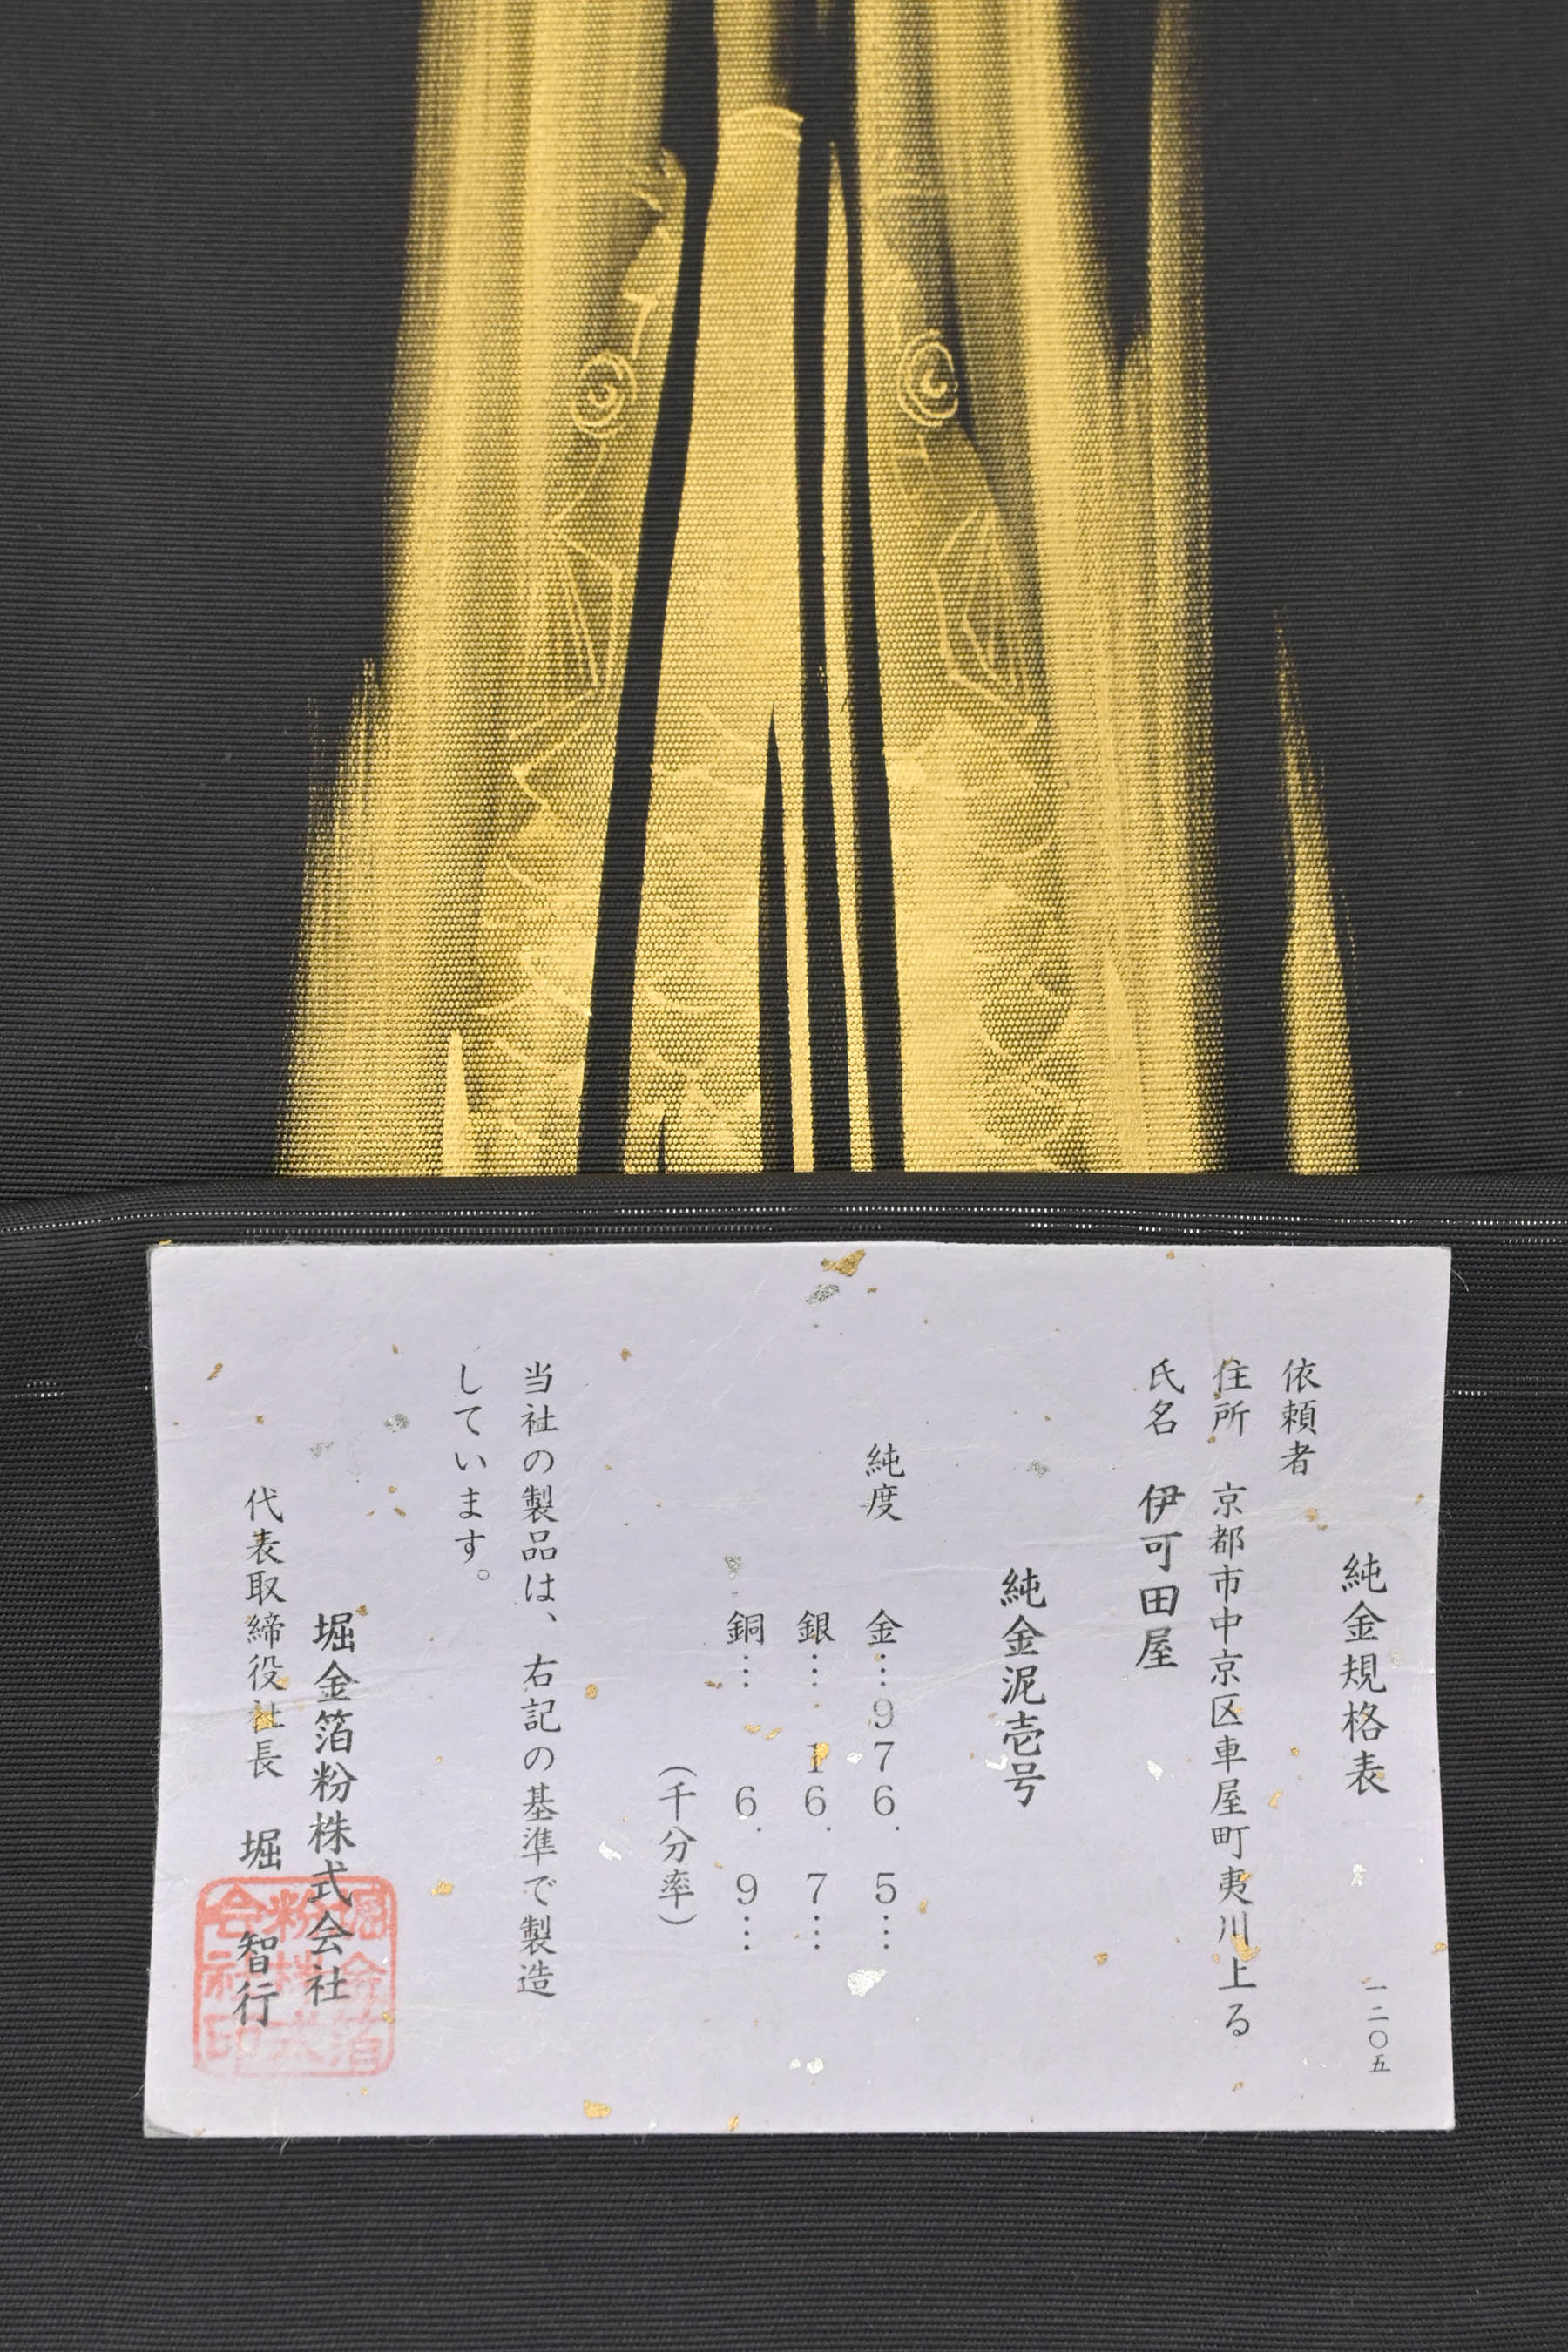 純金規格表
一二〇五
依頼者
住所 京都市中京区車屋町夷川上る
氏名 伊可田屋
純金泥壱号
純度 金…976.5…
銀…16.7…
銅…6.9…
(千分率)
当社の製品は、右記の基準で製造
しています。
堀金箔粉株式会社
代表取締役社長 堀 智行
堀金箔
粉株式
会社印